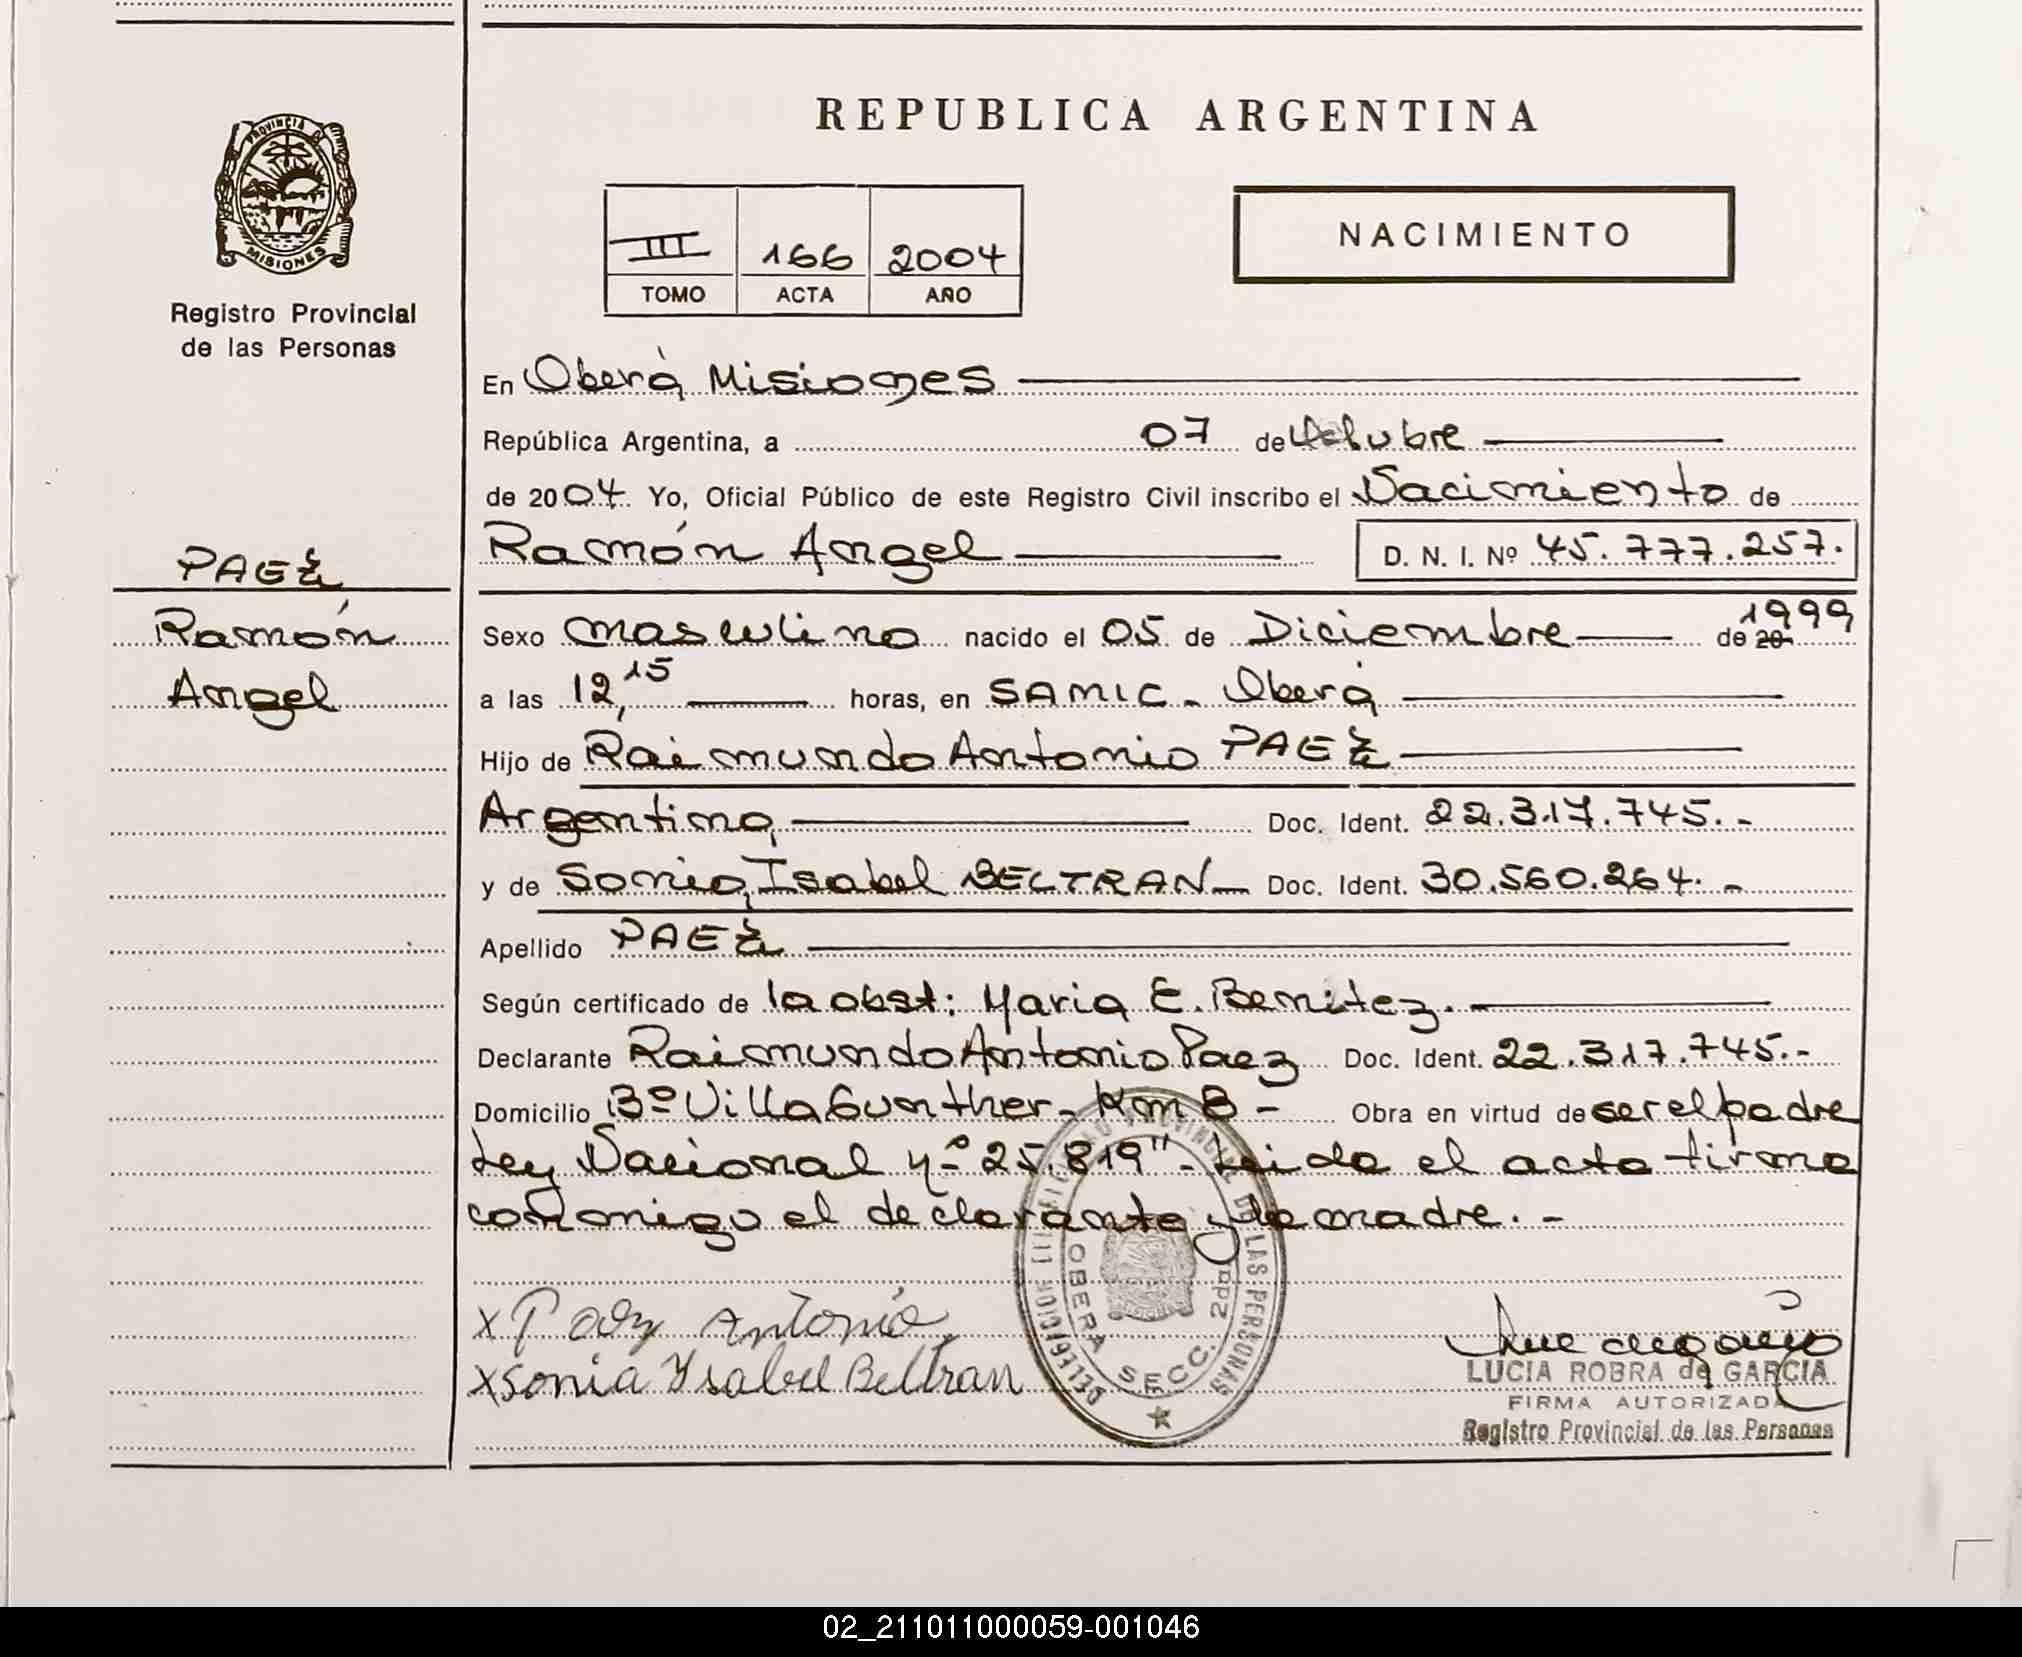 REPUBLICA ARGENTINA
PROVINCIA D
MISIONES
Registro Provincial
de las Personas
III 166 2004
TOMO ACTA AÑO
NACIMIENTO
En Oberá Misiones
República Argentina, a 07 de Octubre
de 2004. Yo, Oficial Público de este Registro Civil inscribo el Nacimiento de
Ramón Angel D. N. I. Nº 45.777.257.
PAEZ
Ramón
Angel
Sexo masculino nacido el 05 de Diciembre de 20 1999
a las 12,15 horas, en SAMIC - Oberá
Hijo de Raimundo Antonio PAEZ
Argentina Doc. Ident. 22.317.745.-
y de Sonia Isabel BELTRAN Doc. Ident. 30.560.264.-
Apellido PAEZ
Según certificado de la obst: Maria E. Benitez.
Declarante Raimundo Antonio Paez Doc. Ident. 22.317.745.-
Domicilio Bº Villa Gunther - Km 8 - Obra en virtud de ser el padre
Ley Nacional nº 25.819"- Leida el acta firma
conmigo el declarante y la madre.-
x Paez Antonio
x Sonia Ysabel Beltran
DE LAS PERSONAS
OBERA SECC. 2da
LUCIA ROBRA de GARCIA
FIRMA AUTORIZADA
Registro Provincial de las Personas
02_211011000059-001046